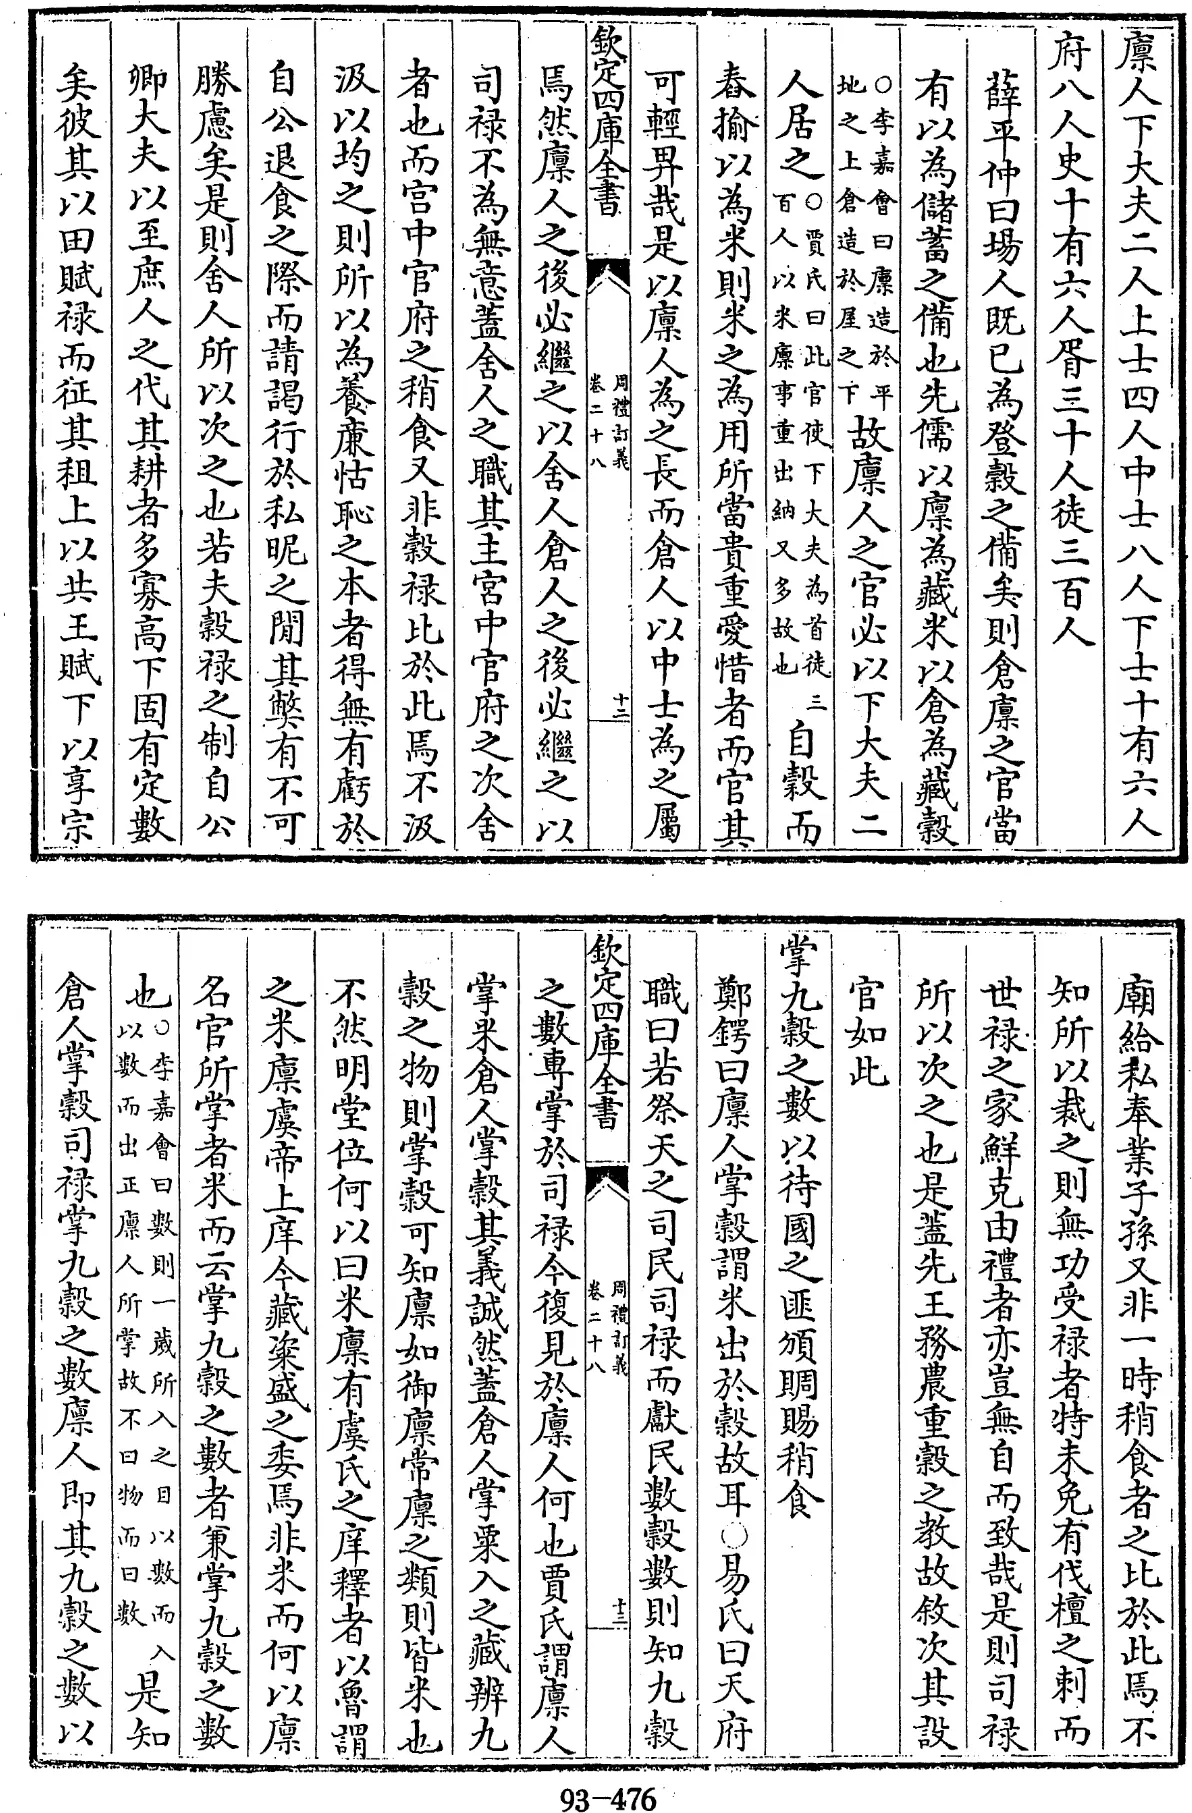 廩人下大夫二人上士四人中士八人下士十有六人
府八人史十有六人胥三十人徒三百人
薛平仲曰場人既已為登穀之備矣則倉廩之官當
有以為儲蓄之備也先儒以廩為藏米以倉為藏穀
○李嘉會曰廩造於平
地之上倉造於屋之下
故廩人之官必以下大夫二
人居之
○賈氏曰此官使下大夫為首徒三
百人以米廩事重出納又多故也
自穀而
舂揄以為米則米之為用所當貴重愛惜者而官其
可輕畀哉是以廩人為之長而倉人以中士為之屬
欽定四庫全書
周禮訂義
卷二十八
十二
焉然廩人之後必繼之以舍人倉人之後必繼之以
司禄不為無意蓋舍人之職其主宮中官府之次舍
者也而宮中官府之稍食又非穀禄比於此焉不汲
汲以均之則所以為養廉怙恥之本者得無有虧於
自公退食之際而請謁行於私昵之間其弊有不可
勝慮矣是則舍人所以次之也若夫穀禄之制自公
卿大夫以至庶人之代其耕者多寡高下固有定數
矣彼其以田賦禄而征其租上以共王賦下以享宗
廟給私奉業子孫又非一時稍食者之比於此焉不
知所以裁之則無功受禄者特未免有伐檀之刺而
世禄之家鮮克由禮者亦豈無自而致哉是則司禄
所以次之也是蓋先王務農重穀之教故敘次其設
官如此
掌九穀之數以待國之匪頒賙賜稍食
鄭鍔曰廩人掌穀謂米出於穀故耳○易氏曰天府
職曰若祭天之司民司禄而獻民數穀數則知九穀
欽定四庫全書
周禮訂義
卷二十八
十三
之數專掌於司禄今復見於廩人何也賈氏謂廩人
掌米倉人掌穀其義誠然蓋倉人掌粟入之藏辨九
穀之物則掌穀可知廩如御廩常廩之類則皆米也
不然明堂位何以曰米廩有虞氏之庠釋者以魯謂
之米廩虞帝上庠今藏粢盛之委焉非米而何以廩
名官所掌者米而云掌九穀之數者兼掌九穀之數
也
○李嘉會曰數則一歲所入之目以數而入
以數而出正廩人所掌故不曰物而曰數
是知
倉人掌穀司禄掌九穀之數廩人即其九穀之數以
93-476